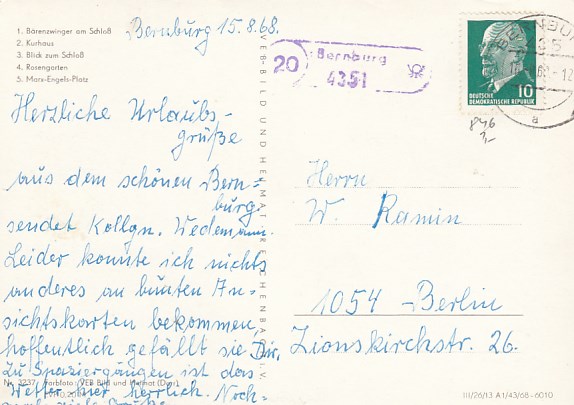 1. Bärenzwinger am Schloß
2. Kurhaus
3. Blick zum Schloß
4. Rosengarten
5. Marx-Engels-Platz
Bernburg 15.8.68.
20 Bernburg
4351
BERNBURG
DEUTSCHE
DEMOKRATISCHE REPUBLIK 10
a
846
1,-
Herzliche Urlaubs-
grüße
aus dem schönen Bern=
burg
sendet Kollgn. Wedemann.
Leider konnte ich nichts
anderes an bunten An-
sichtskarten bekommen,
hoffentlich gefällt sie Dir.
Zu Spaziergängen ist das
Wetter hier herrlich. Noch-
Herrn
W. Ramin
1054 - Berlin
Zionskirchstr. 26.
VEB BILD UND HEIMAT REICHENBACH I. V.
Nr. 3237 Farbfoto: VEB Bild und Heimat
III/26/13 A1/43/68 - 6010